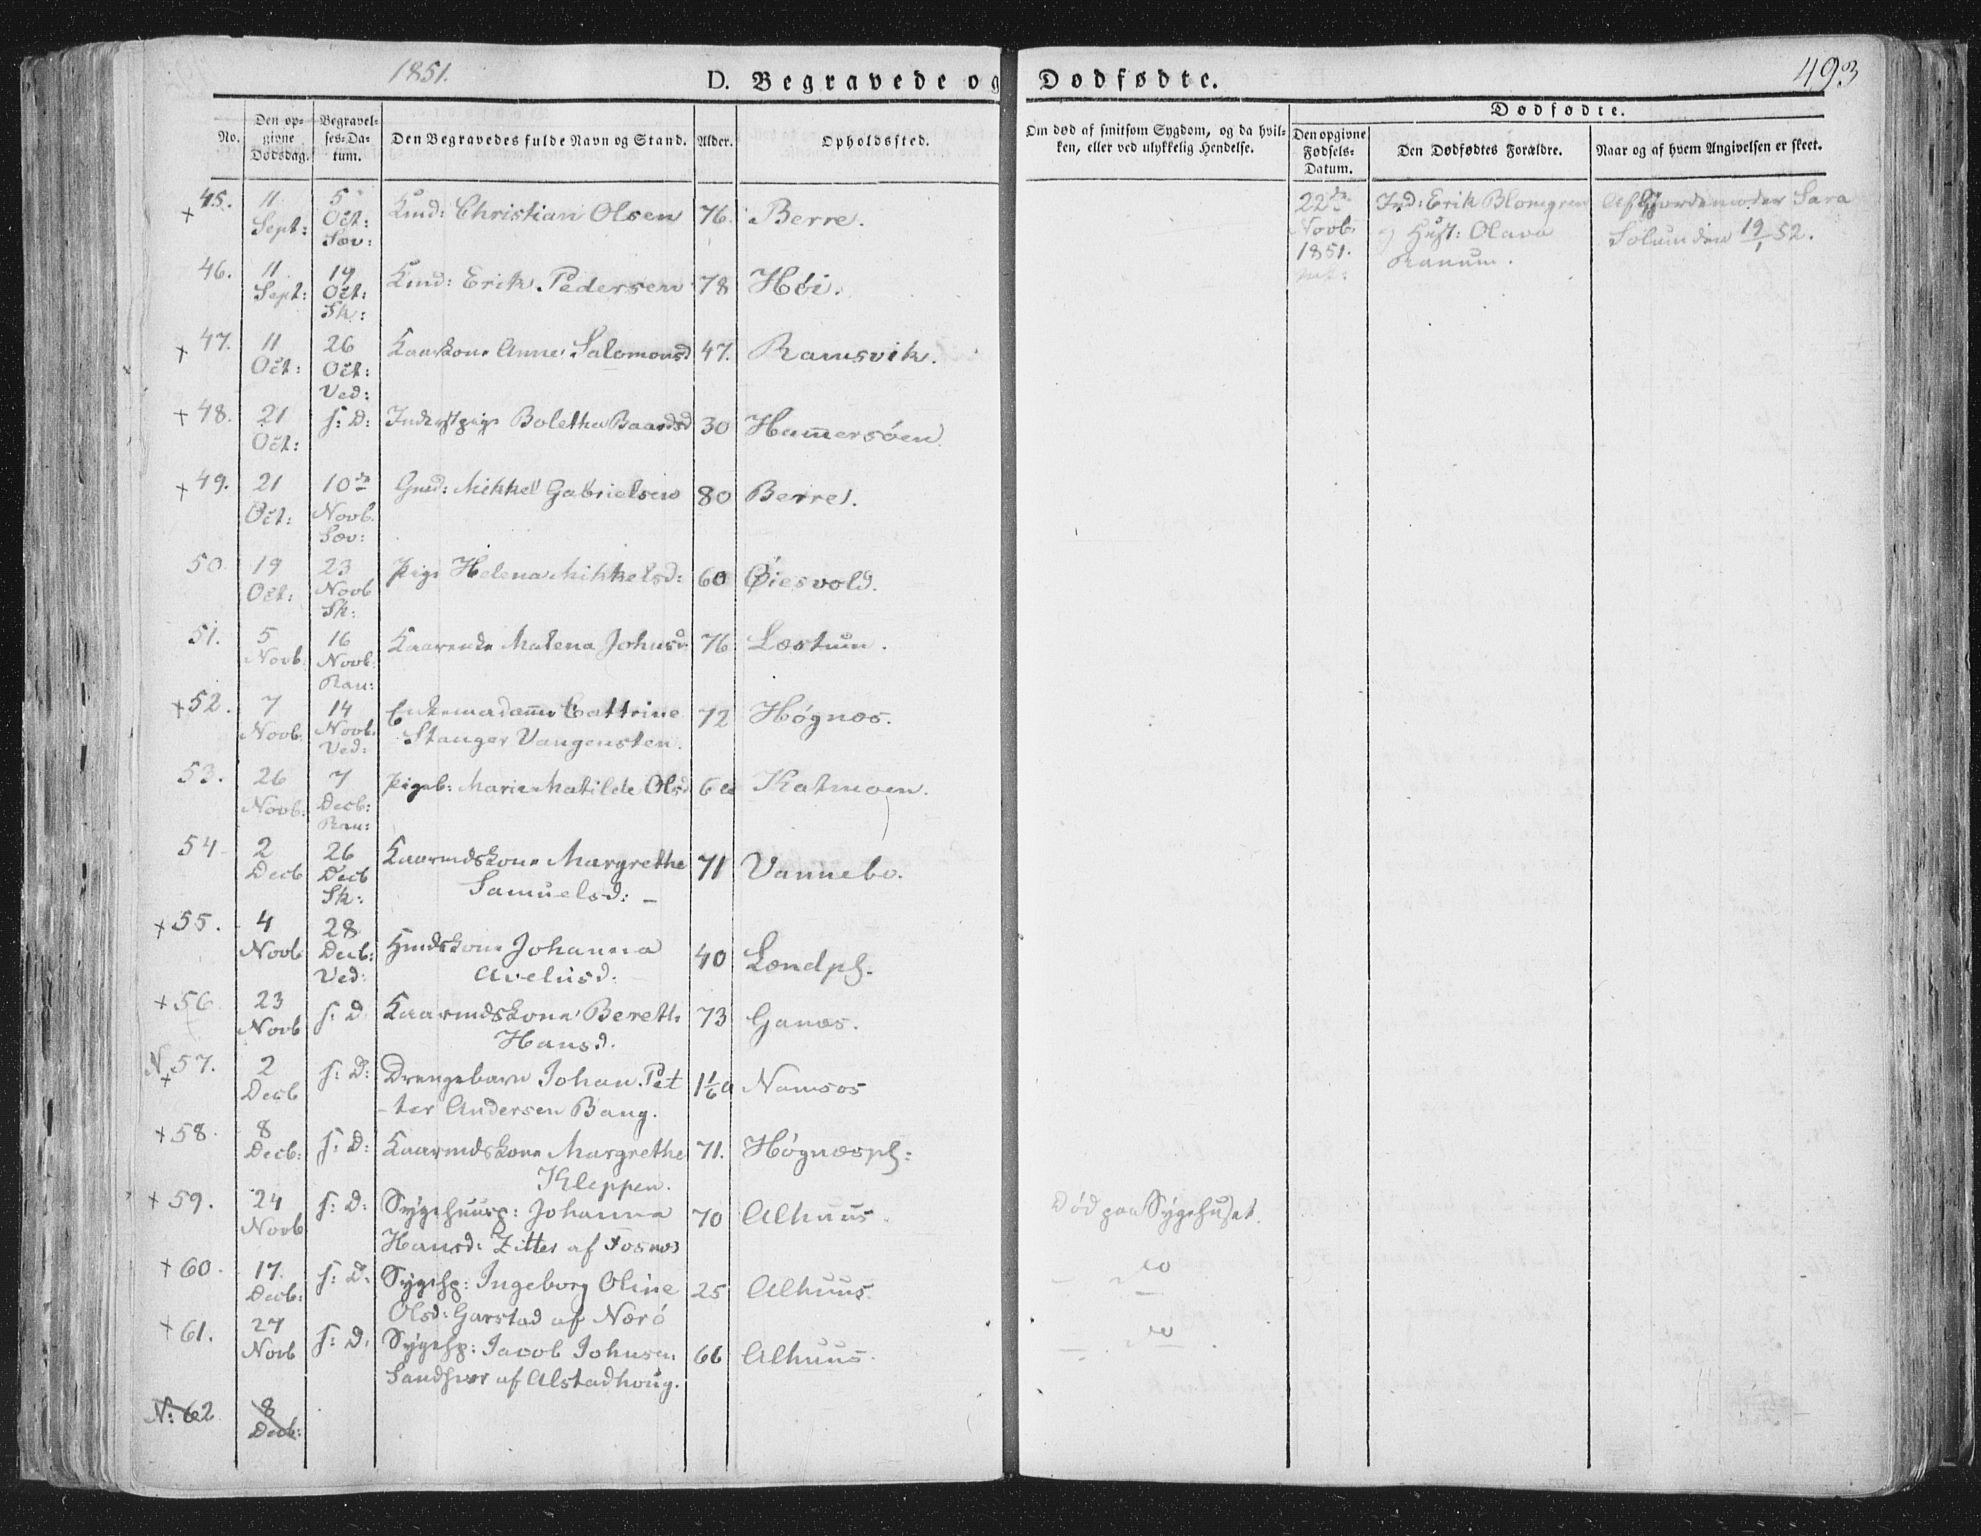 1851.
D. Begravede og Dødfødte.
493
No.
Den op-
givne
Dødsdag.
Begravel-
ses-Da-
tum.
Den Begravedes fulde Navn og Stand.
Alder.
Opholdssted.
Om død af smitsom Sygdom, og da hvil-
ken, eller ved ulykkelig Hendelse.
Dødfødte.
Den opgivne
Fødsels-
Datum.
Den Dødfødtes Forældre.
Naar og af hvem Angivelsen er skeet.
+ 45. 11 Sept: 5 Oct: Sæv: Christian Olsen 76. Berre.
46. 11 Sept: 19 Oct: Sk: Erik Pedersen 78 Høi.
+ 47. 11 Oct: 26 Oct: Ved: Kaarkone Anne Salomonsd 47. Ramsvik.
+ 48. 21 Oct: s: D: Inderstpige Boletha Baardsd 30 Hammersøen
+ 49. 21 Oct: 10de Novb. Sæv: Gmd: Mikkel Gabrielsen 80 Berre.
50. 19 Oct: 23 Novb Sk: Pige Helena Mikkelsd: 60 Øiesvold.
51. 5 Novb: 16 Novb. Ran: Kaarenke Malena Johnsd: 76 Læstum.
+ 52. 7 Novb. 14 Novb. Ved: Enkemadamme Cattrine
Stanger Vangensten. 72 Høgnæs.
53. 26 Novb: 7 Decb: Ran: Pigeb: Marie Matilde Olsd Katmoen.
54 2 Decb 26 Decb Sk: Kaarmdskone Margrethe
Samuelsd: – 71 Vannebo.
+ 55. 4 Novb 28 Decb: Ved: Johanna
Avelusd. 40 Lændpl.
+ 56 23 Novb s. D. Kaarmdskone Bereth
Hansd. 73 Ganæs.
N + 57. 2 Decb s: D: Drengebarn Johan Pet
-ter Andersen Bang. 1 1/6 a Namsos
+ 58. 8 Decb: s. D: Kaarmdskone Margrethe
Kleppen. 71. Høgnæspl:
+ 59. 24 Novb s: D: Sygehuusp: Johanna
Hansd: Zitter af Fosnæs 70 Alhuus. Død paa Sygehuset.
+ 60. 17. Decb: s: D. Sygehp: Ingeborg Oline
Olsd: Garstad af Nærö 25 Alhuus. – do –
+ 61. 27 Novb s: D. Sygehp: Jacob Johnsen
Sandhver af Alstadhoug. 66 Alhuus. – do –
N: 62 8 Decb:
22de
Novb.
1851.
Ind: Erik Blomgren
og Hust: Olava
Ranum.
Af Gjordemoder Sara
Solum den 19/1 52.